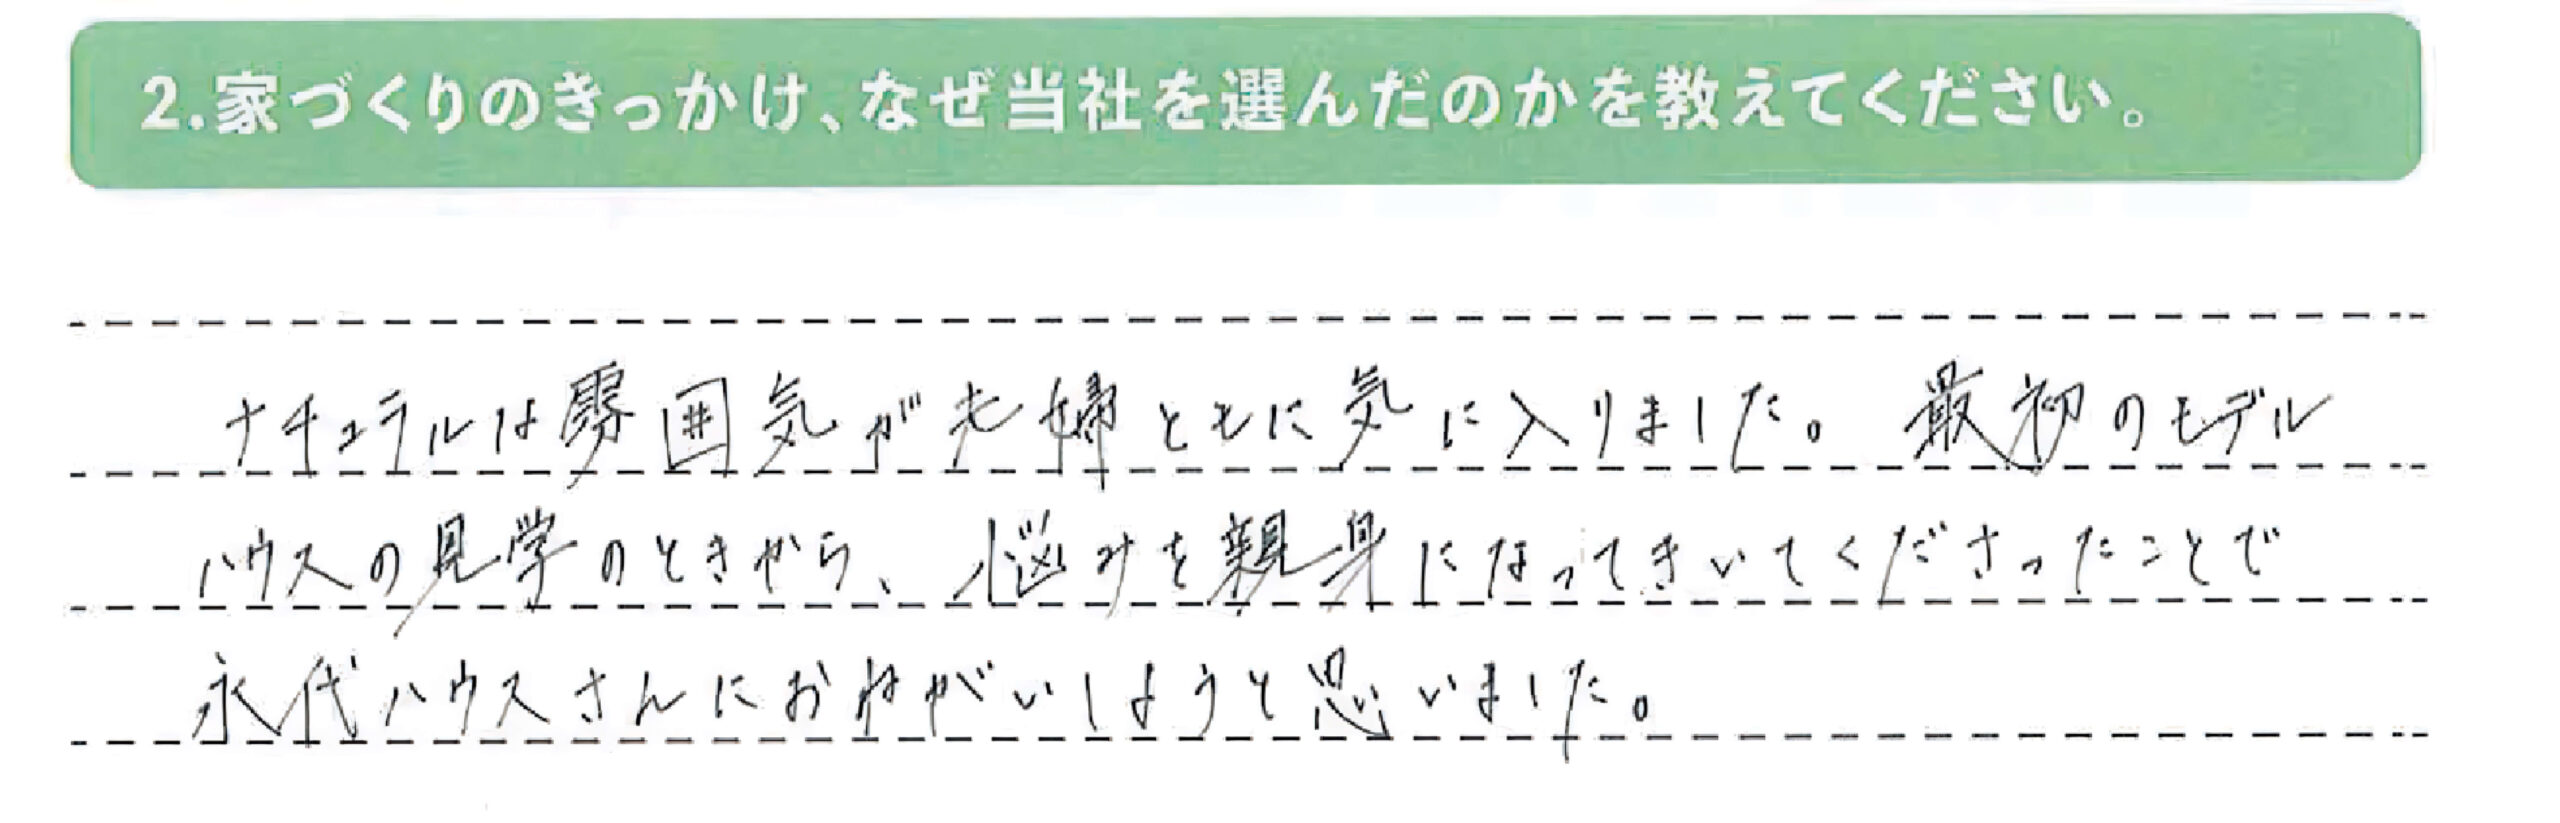 2.家づくりのきっかけ、なぜ当社を選んだのかを教えてください。
ナチュラルは雰囲気が夫婦ともに気に入りました。最初のモデル
ハウスの見学のときから、悩みを親身になってきいてくださったことで
永代ハウスさんにおねがいしようと思いました。